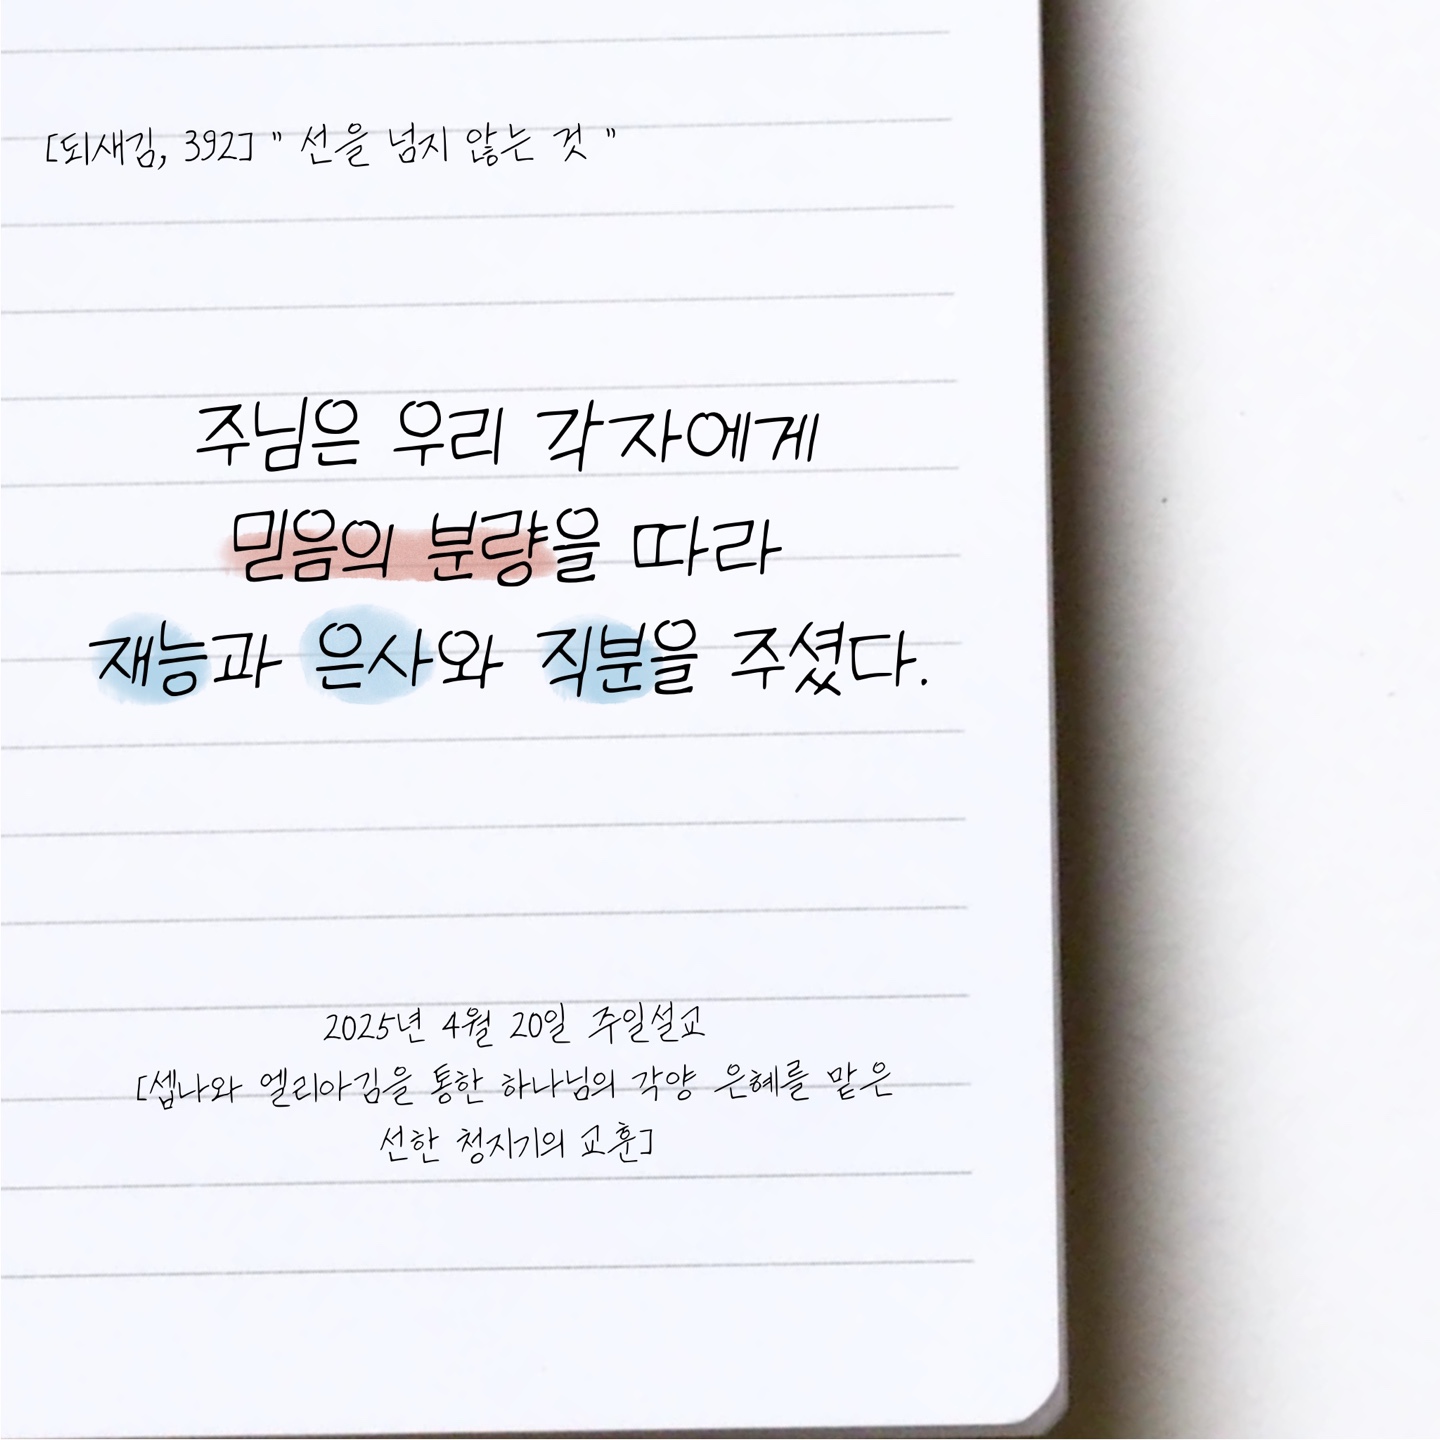 [되새김, 392] " 선을 넘지 않는 것 "
주님은 우리 각자에게
믿음의 분량을 따라
재능과 은사와 직분을 주셨다.
2025년 4월 20일 주일설교
[셉나와 엘리아김을 통한 하나님의 각양 은혜를 맡은
선한 청지기의 교훈]